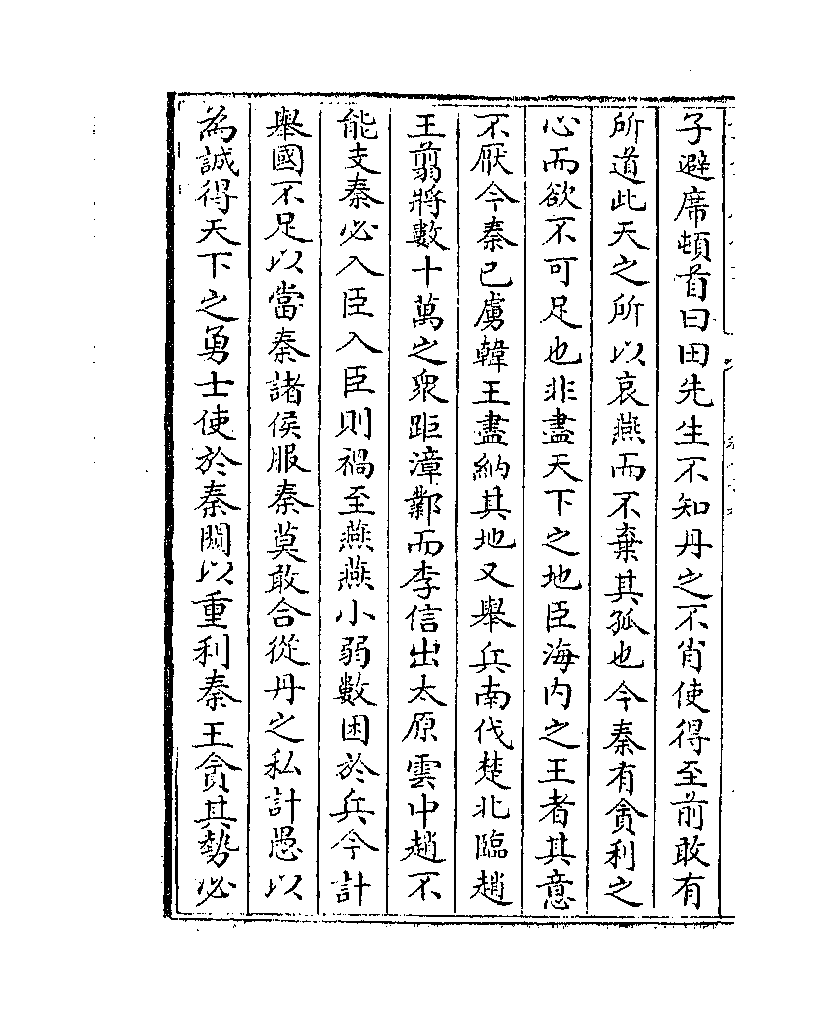 子避席頓首曰田先生不知丹之不肖使得至前敢有
所道此天之所以哀燕而不棄其孤也今秦有貪利之
心而欲不可足也非盡天下之地臣海内之王者其意
不厭今秦已虜韓王盡納其地又舉兵南伐楚北臨趙
王翦將數十萬之衆距漳鄴而李信出太原雲中趙不
能支秦必入臣入臣則禍至燕燕小弱數困於兵今計
舉國不足以當秦諸侯服秦莫敢合從丹之私計愚以
為誠得天下之勇士使於秦闚以重利秦王貪其勢必